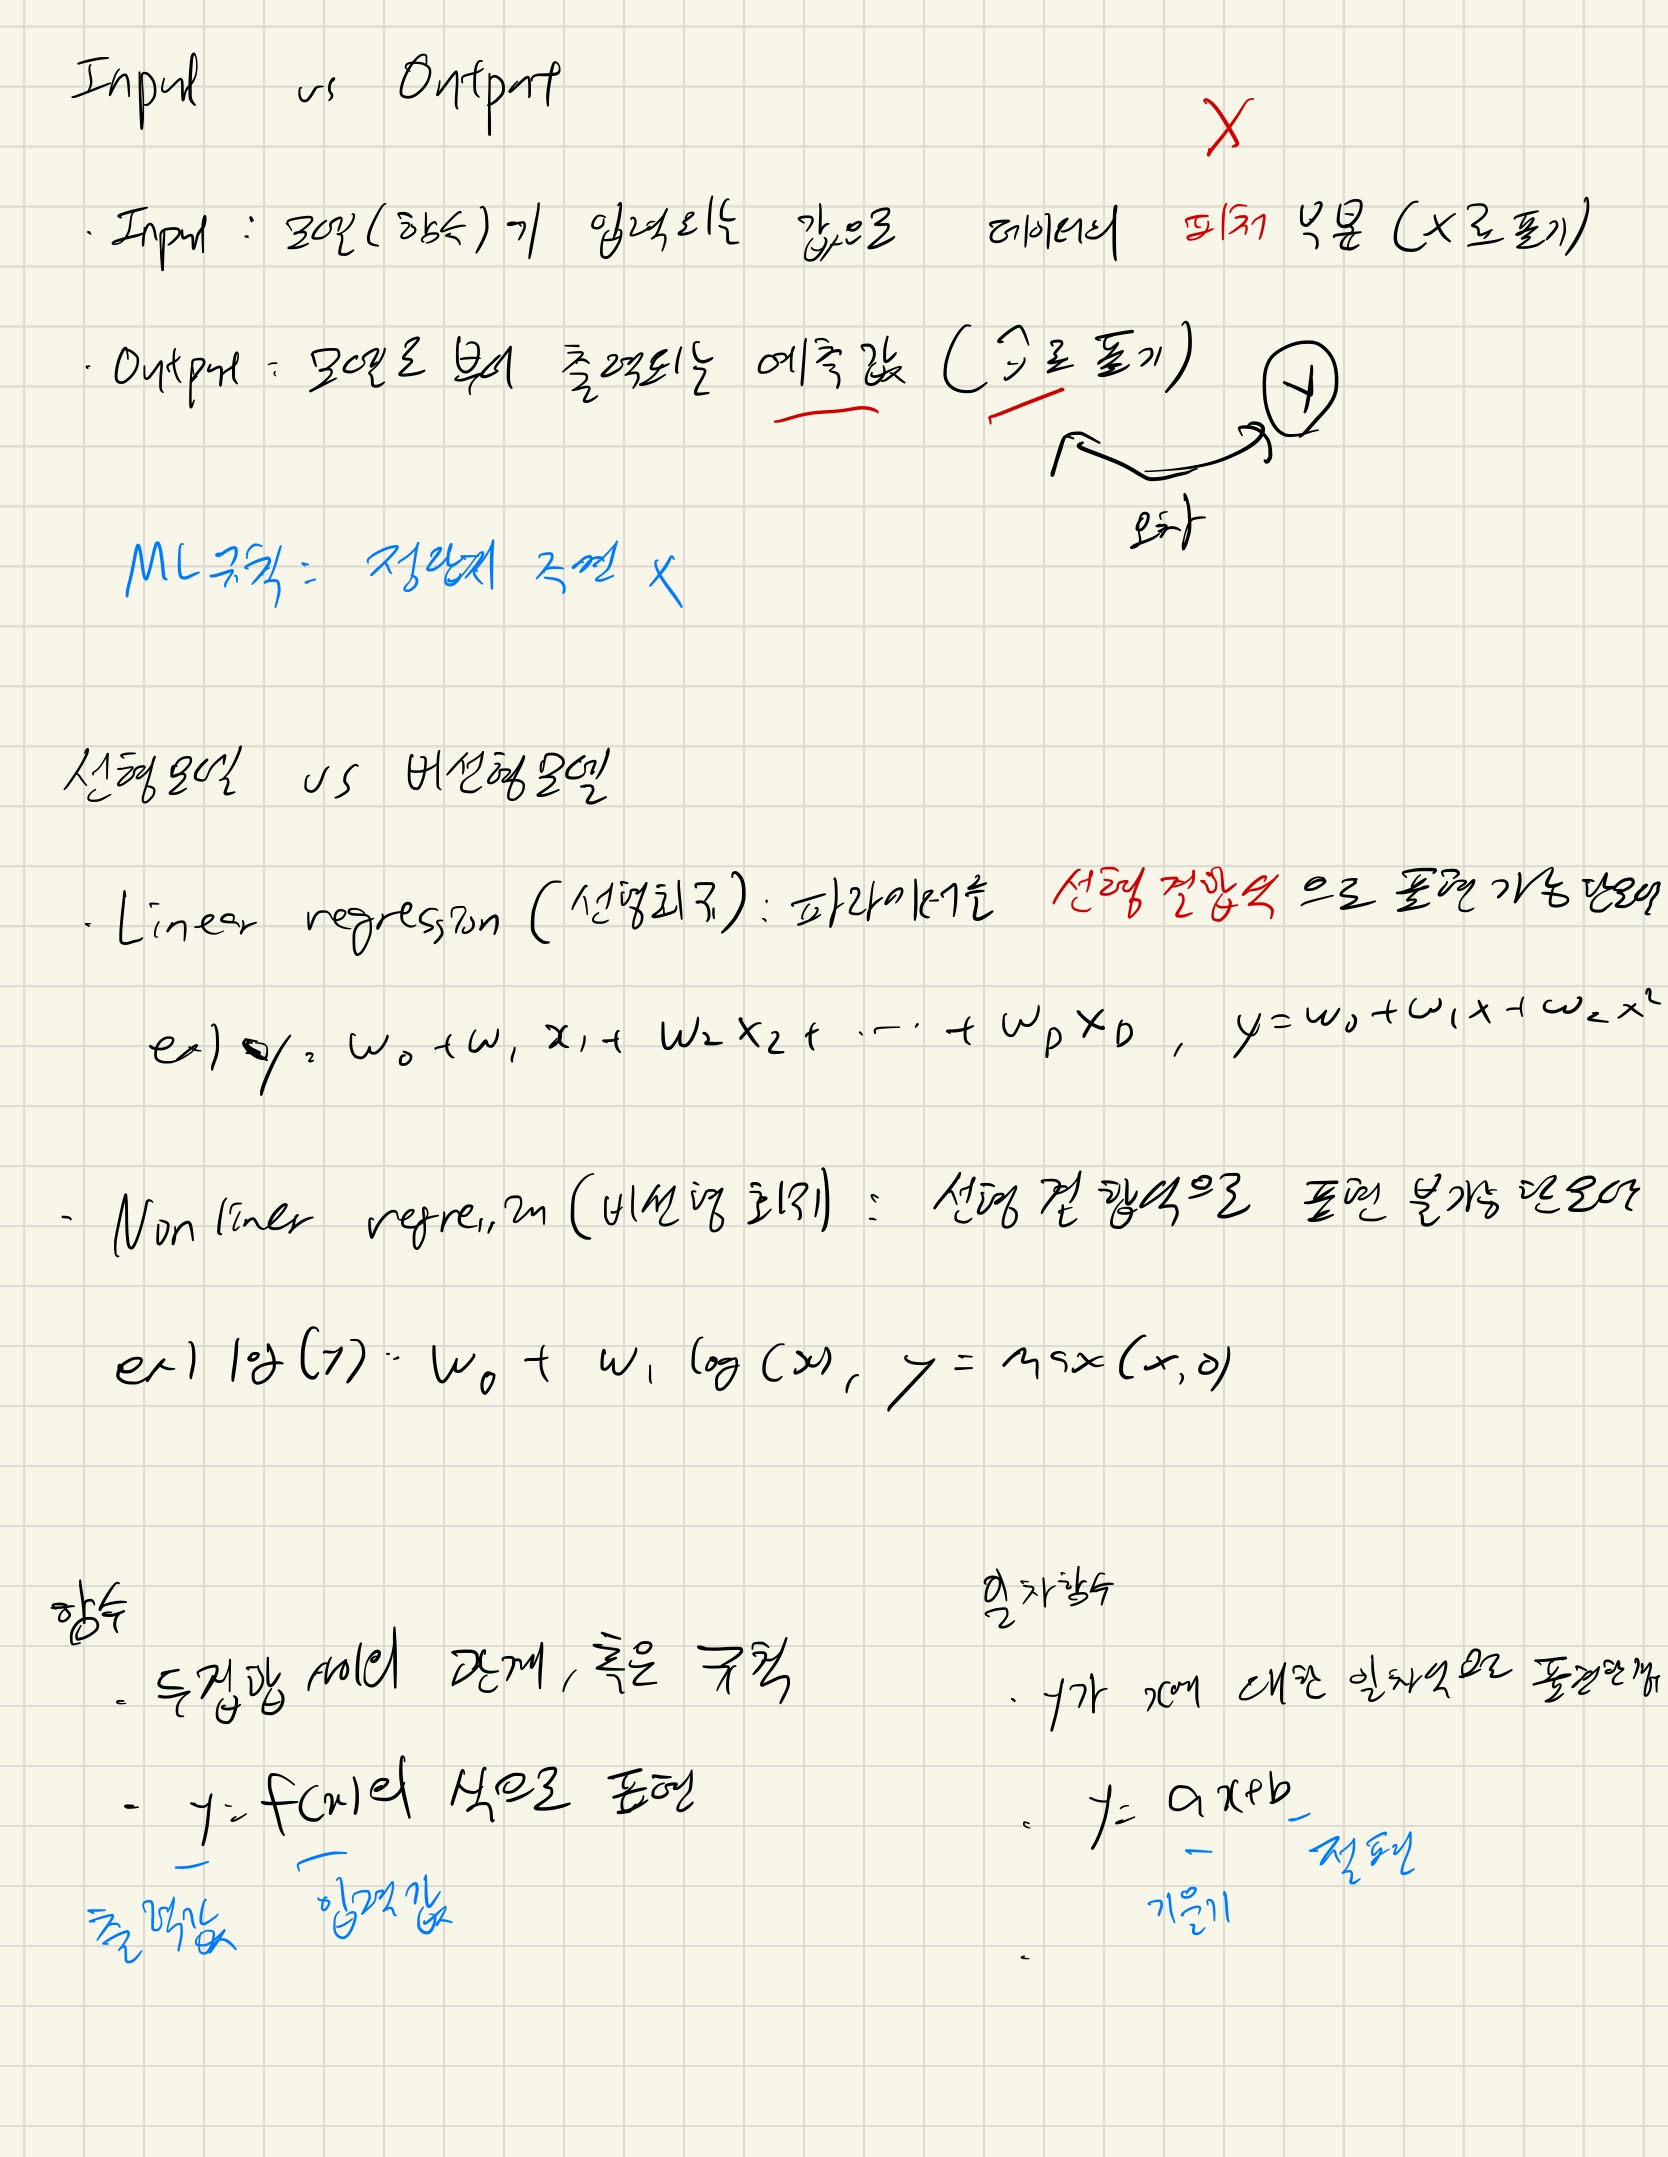 Input vs Output
X
· Input : 모델(함수)가 입력되는 값으로 데이터의 피처 부분 (X로 표기)
· Output : 모델로 부터 출력되는 예측값 (ŷ로 표기)
Y
오차
ML규칙 :
X
선형모델 vs 비선형모델
· Linear regression (선형회귀) : 파라미터를 선형 결합식으로 표현 가능한 모델
ex) y = w₀ + w₁ x₁ + w₂ x₂ + ... + w_D x_D , y = w₀ + w₁x + w₂x²
- Non linear regression (비선형 회귀) : 선형 결합식으로 표현 불가능한 모델
ex) log(y) = w₀ + w₁ log(x), y = max(x, 0)
함수
· 두집합 사이의 관계, 혹은 규칙
- y = f(x)의 식으로 표현
출력값 입력값
일차함수
· y가 x에 대한 일차식으로 표현한
· y = ax+b
기울기 절편